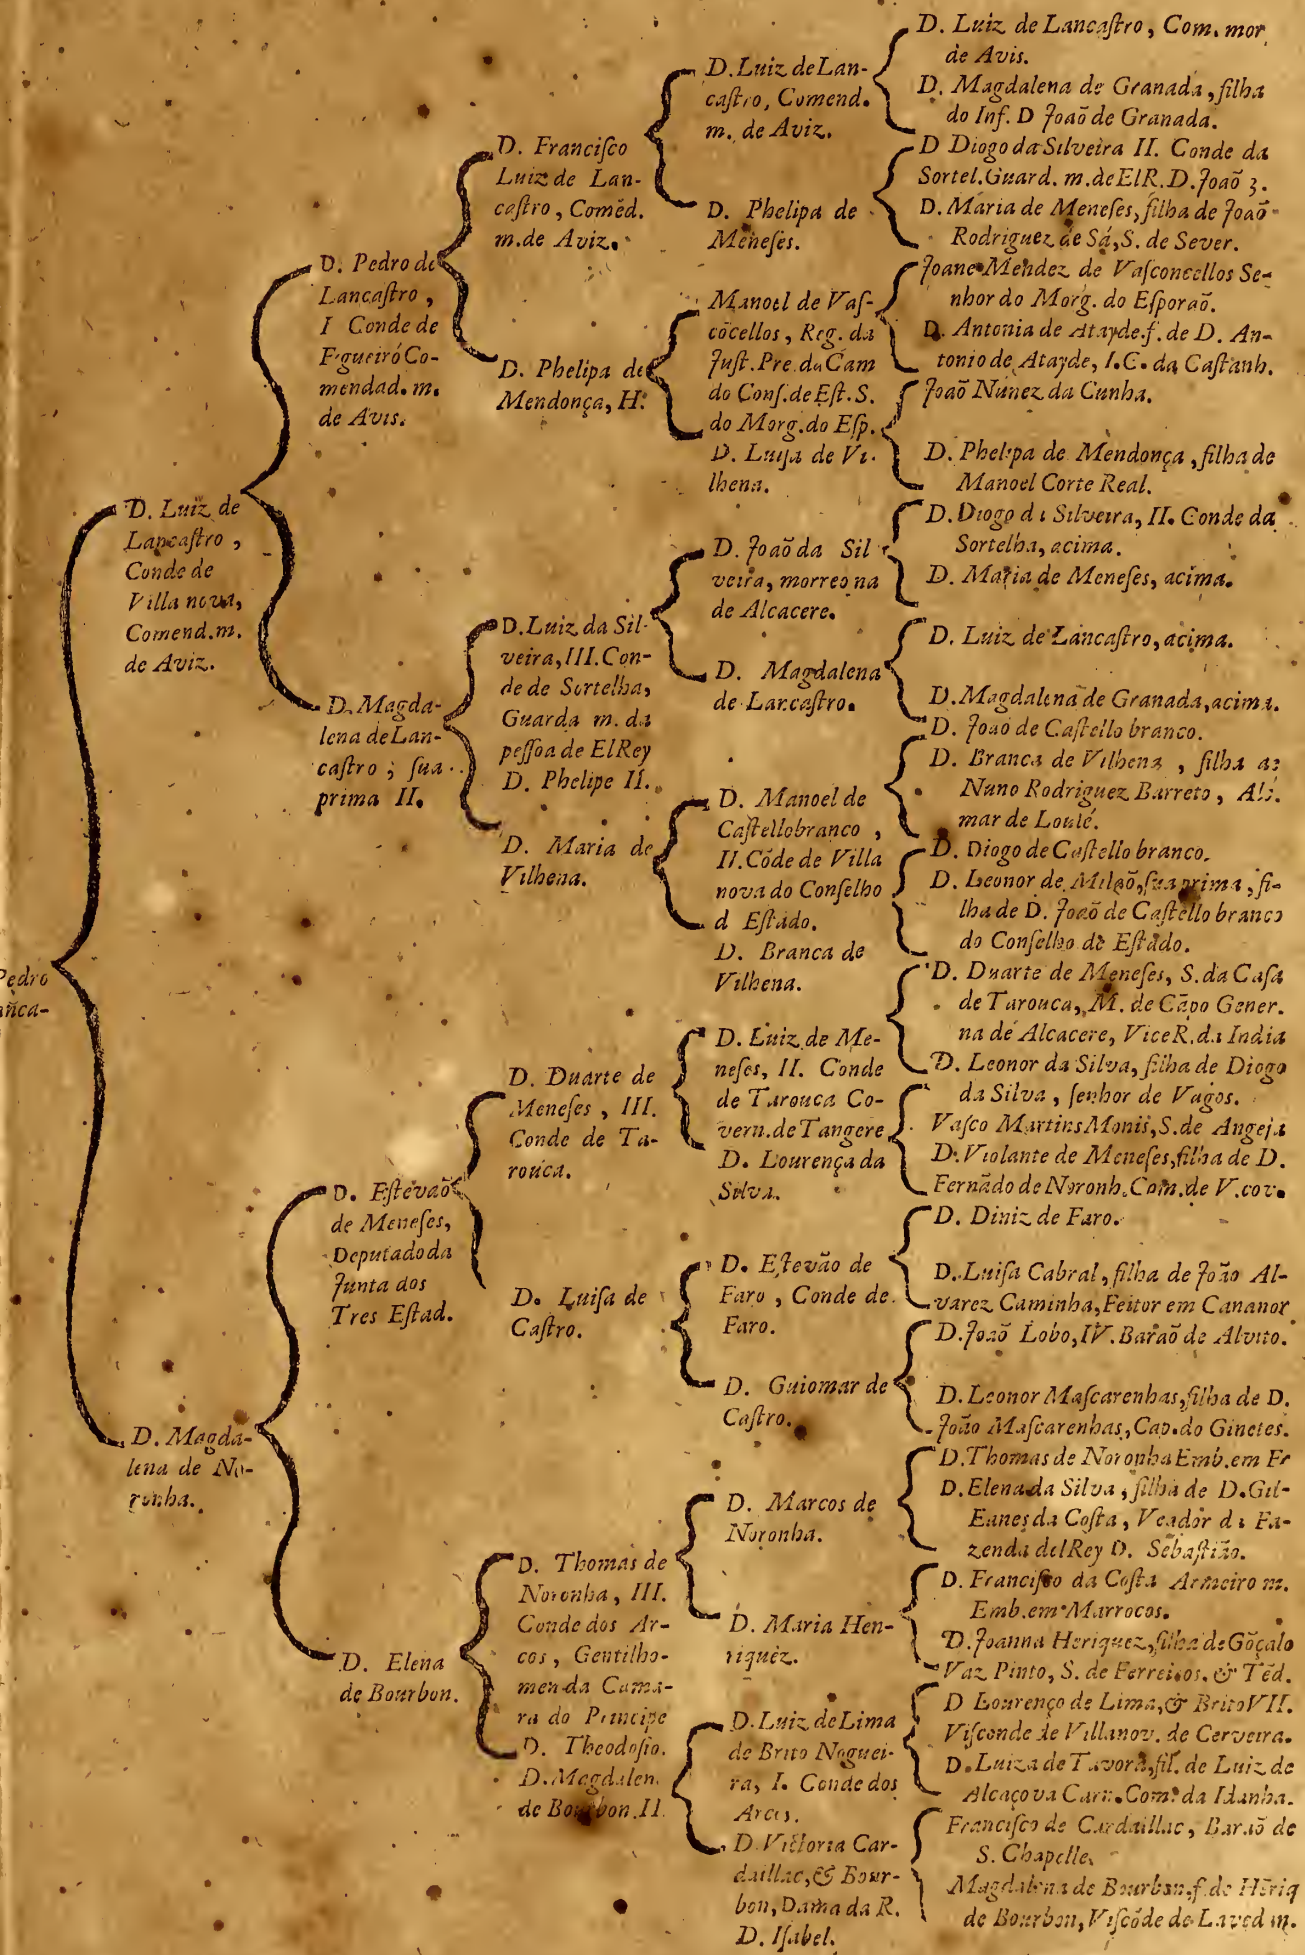 Pedro
D. Luiz de
Lancaſtro,
Conde de
Villa nova,
Comend.m.
de Aviz.
D. Magda-
lena de No-
ronha.
D. Pedro de
Lancaſtro,
I Conde de
Figueiró Co-
mendad. m.
de Avis.
D. Magda-
lena de Lan-
caſtro; ſua
prima II.
D. Eſtevaõ
de Meneſes,
Deputado da
Junta dos
Tres Eſtad.
D. Elena
de Bourbon.
D. Franciſco
Luiz de Lan-
caſtro, Comẽd.
m. de Aviz.
D. Phelipa de
Mendonça, H.
D. Luiz da Sil-
veira, III. Con-
de de Sortelha,
Guarda m. da
peſſoa de ElRey
D. Phelipe II.
D. Maria de
Vilhena.
D. Duarte de
Meneſes, III.
Conde de Ta-
rouca.
D. Luiſa de
Caſtro.
D. Thomas de
Noronha, III.
Conde dos Ar-
cos, Gentilho-
men da Cama-
ra do Principe
D. Theodoſio.
D. Magdalen.
de Bourbon. II.
D. Luiz de Lan-
caſtro, Comend.
m. de Aviz.
D. Phelipa de
Meneſes.
Manoel de Vaſ-
cõcellos, Reg. da
Juſt. Pre. da Cam
do Conſ. de Eſt. S.
do Morg. do Eſp.
D. Luiſa de Vi-
lhena.
D. Joaõ da Sil
veira, morreo na
de Alcacere.
D. Magdalena
de Lancaſtro.
D. Manoel de
Caſtellobranco,
II. Cõde de Villa
nova do Conſelho
d Eſtado.
D. Branca de
Vilhena.
D. Luiz de Me-
neſes, II. Conde
de Tarouca Co-
vern. de Tangere
D. Lourença da
Silva.
D. Eſtevão de
Faro, Conde de
Faro.
D. Guiomar de
Caſtro.
D. Marcos de
Noronha.
D. Maria Hen-
riquez.
D. Luiz de Lima
de Brito Noguei-
ra, I. Conde dos
Arcos.
D. Victoria Car-
daillac, & Bour-
bon, Dama da R.
D. Iſabel.
D. Luiz de Lancaſtro, Com. mor
de Avis.
D. Magdalena de Granada, filha
do Inf. D Joaõ de Granada.
D Diogo da Silveira II. Conde da
Sortel. Guard. m. de ElR. D. Joaõ 3.
D. Maria de Meneſes, filha de Joaõ
Rodriguez de Sá, S. de Sever.
Joane Mendez de Vaſconcellos Se-
nhor do Morg. do Eſporaõ.
D. Antonia de Atayde f. de D. An-
tonio de Atayde, I.C. da Caſtanh.
Joaõ Nunez da Cunha.
D. Phelipa de Mendonça, filha de
Manoel Corte Real.
D. Diogo da Silveira, II. Conde da
Sortelha, acima.
D. Maria de Meneſes, acima.
D. Luiz de Lancaſtro, acima.
D. Magdalena de Granada, acima.
D. Joaõ de Caſtello branco.
D. Branca de Vilhena, filha de
Nuno Rodriguez Barreto, Alc.
mar de Loulé.
D. Diogo de Caſtello branco.
D. Leonor de Milaõ, ſua prima, fi-
lha de D. Joaõ de Caſtello branco
do Conſelho de Eſtado.
D. Duarte de Meneſes, S. da Caſa
de Tarouca, M. de Cãpo Gener.
na de Alcacere, ViceR. da India
D. Leonor da Silva, filha de Diogo
da Silva, ſenhor de Vagos.
Vaſco Martins Monis, S. de Angeja
D. Violante de Meneſes, filha de D.
Fernãdo de Noronh. Com. de V. cov.
D. Diniz de Faro.
D. Luiſa Cabral, filha de João Al-
varez Caminha, Feitor em Cananor
D. Joaõ Lobo, IV. Baraõ de Alvito.
D. Leonor Maſcarenhas, filha de D.
João Maſcarenhas, Cap. do Ginetes.
D. Thomas de Noronha Emb. em Fr
D. Elena da Silva, filha de D. Gil-
Eanes da Coſta, Veador da Fa-
zenda delRey D. Sebaſtião.
D. Franciſco da Coſta Armeiro m.
Emb. em Marrocos.
D. Joanna Heriquez, filha de Gõçalo
Vaz Pinto, S. de Ferreiros. & Tẽd.
D Lourenço de Lima, & Brito VII.
Viſconde de Villanov. de Cerveira.
D. Luiza de Tavora, fil. de Luiz de
Alcaçova Carn. Com. da Idanha.
Franciſco de Cardaillac, Baraõ de
S. Chapelle.
Magdalena de Bourbon. f. de Hẽriq
de Bourbon, Viſcõde de Laved m.